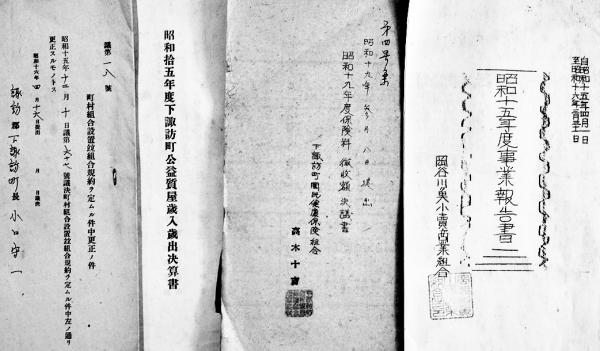 自昭和十五年四月一日
至昭和十六年三月三十一日
昭和十五年度事業報告書
岡谷川魚小賣商業組合
第四号案
昭和十九年 月八日提出
昭和十九年度保險料徴收額決議書
下諏訪町國民健康保險組合
高木十
昭和拾五年度下諏訪町公益質屋歳入歳出決算書
議第一八號
町村組合設置竝組合規約ヲ定ムル件中更正ノ件
昭和十五年十二月十日議第六十七號議決町村組合設置竝組合規約ヲ定ムル件中左ノ通リ
更正スルモノトス
昭和十六年四月十六日提出 月 日議決
諏訪郡下諏訪町長 小口守一